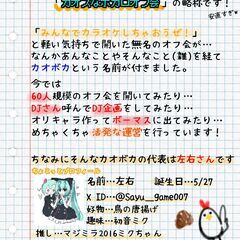 「カオなボカロオフ会」の略称です！
安直すぎw
「みんなでカラオケしちゃおうぜ！」
と軽い気持ちで開いた無名のオフ会が…
なんかあんなことやそんなこと(雑)を経て
カオボカという名前が付きました。
今では
60人規模のオフ会を開いてみたり…
DJさん呼んでDJ企画をしてみたり…
オリキャラ作ってボーマスに出てみたり…
めちゃくちゃ活発な運営を行っています！
ちなみにそんなカオボカの代表は左右さんです
ちょこっとプロフィール
名前…左右 誕生日…5/27
X ID…@Sayu__game007
好物…鳥の唐揚げ
趣味…初音ミク
推し…マジミラ2016ミクちゃん